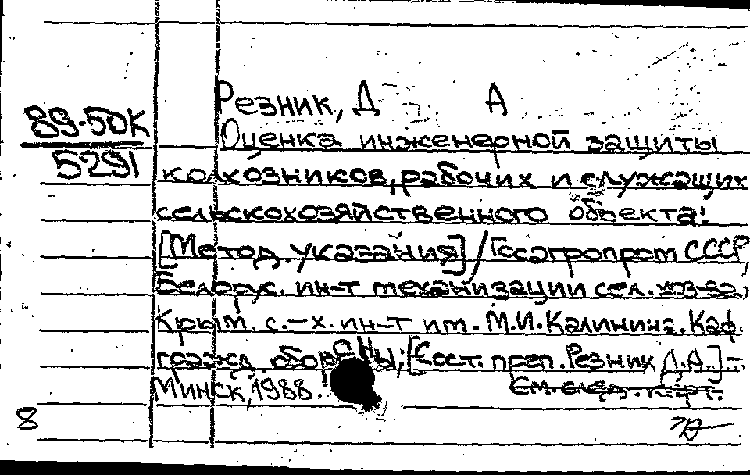 Резник, Д А
89-50К
5291
Оценка инженерной защиты
колхозников, рабочих и служащих
сельскохозяйственного объекта:
[Метод. указания] / Госагропром СССР,
Белорус. ин-т механизации сел. хоз-ва,
Крым. с.-х. ин-т им. М.И. Калинина. Каф.
гражд. обороны; [Сост. преп. Резник Д.А.].-
Минск, 1988.
См. след. карт.
8